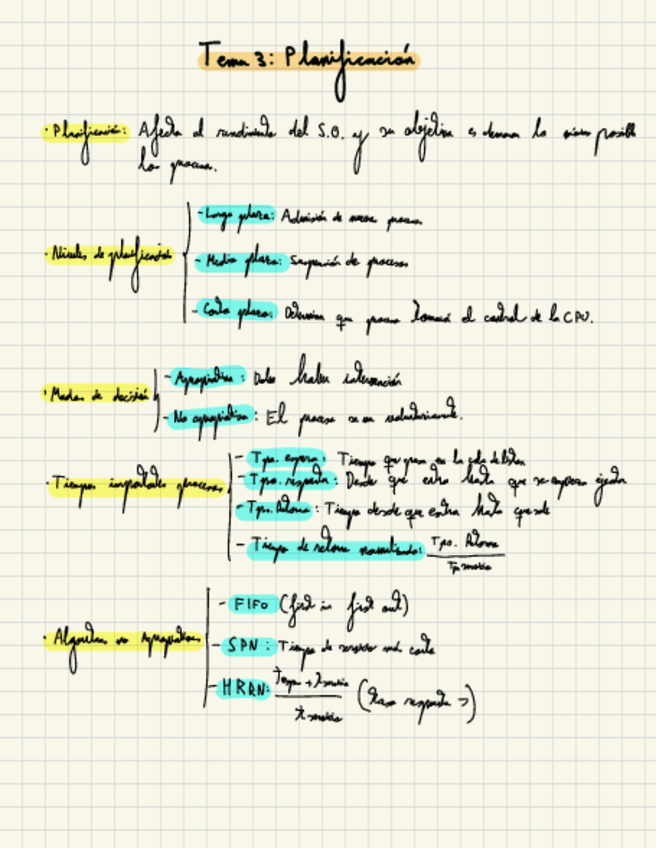 Tema 3: Planificación
· Planificación: Afecta al rendimiento del S.O. y su objetivo es demorar lo mínimo posible
los procesos.
· Niveles de planificación
- Largo plazo: Admisión de nuevos procesos
- Medio plazo: Suspensión de procesos
- Corto plazo: Determina que proceso tomará el control de la CPU.
· Modos de decisión
- Apropiativa: Debe haber intervención
- No apropiativa: El proceso se va voluntariamente.
· Tiempos importantes procesos
- Tpo. espera: Tiempo que pasa en la cola de listos
- Tpo. respuesta: Desde que entra hasta que se empieza ejecutar
- Tpo. Retorno: Tiempo desde que entra hasta que sale
- Tiempo de retorno normalizado: Tpo. Retorno
Tp servicio
· Algoritmos no Apropiativos
- FIFO (first in first out)
- SPN: Tiempo de servicio más corto
- HRRN: Tespera + Tservicio (tasa respuesta >)
t servicio